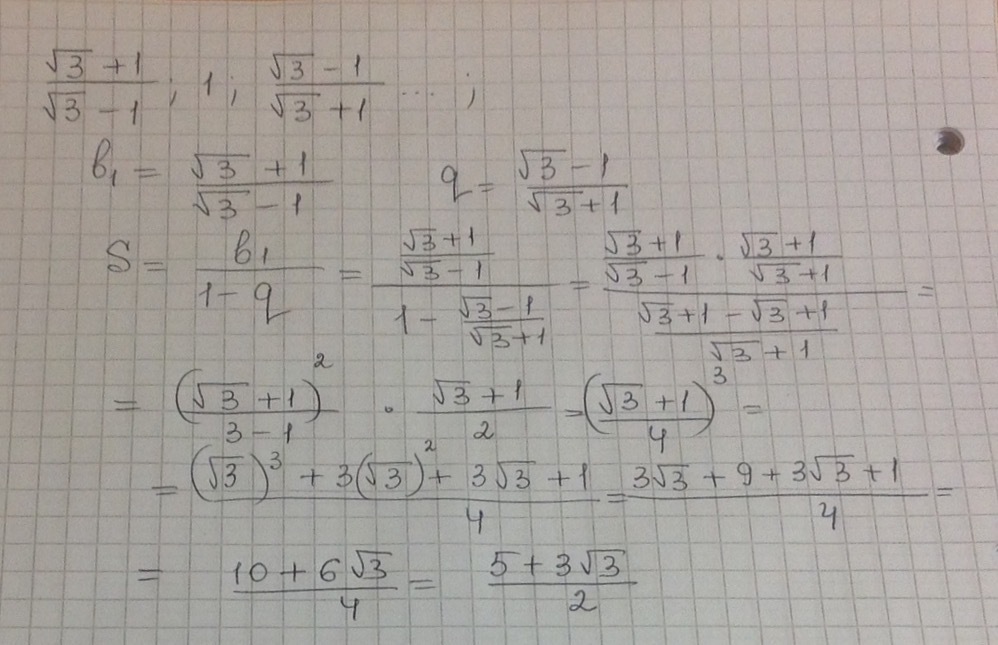 (√3 + 1)/(√3 − 1) ; 1 ; (√3 − 1)/(√3 + 1) ... ;
b₁ = (√3 + 1)/(√3 − 1) q = (√3 − 1)/(√3 + 1)
S = b₁/(1 − q) = ((√3 + 1)/(√3 − 1))/(1 − (√3 − 1)/(√3 + 1)) = ((√3 + 1)/(√3 − 1) · (√3 + 1)/(√3 + 1))/((√3 + 1 − √3 + 1)/(√3 + 1)) =
= (√3 + 1)²/(3 − 1) · (√3 + 1)/2 = (√3 + 1)³/4 =
= ((√3)³ + 3(√3)² + 3√3 + 1)/4 = (3√3 + 9 + 3√3 + 1)/4 =
= (10 + 6√3)/4 = (5 + 3√3)/2